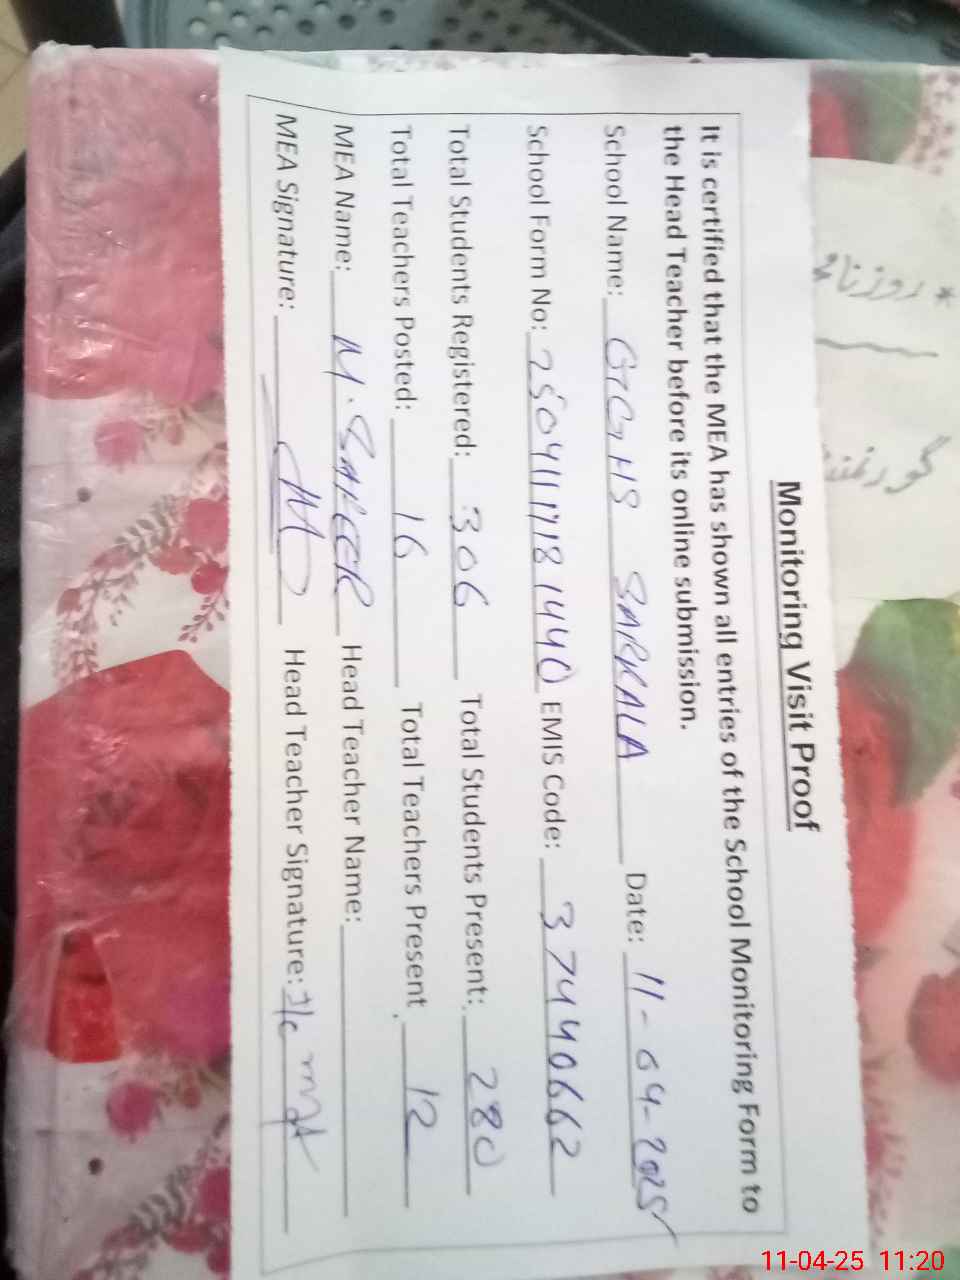 Monitoring Visit Proof
It is certified that the MEA has shown all entries of the School Monitoring Form to
the Head Teacher before its online submission.
School Name: GGHS SARKALA Date: 11-04-2025
School Form No: EMIS Code: 37440662
Total Students Registered: 306 Total Students Present: 280
Total Teachers Posted: 16 Total Teachers Present 12
MEA Name: M. SAFEER Head Teacher Name:
MEA Signature: Head Teacher Signature:
* روزنامچہ
11-04-25 11:20